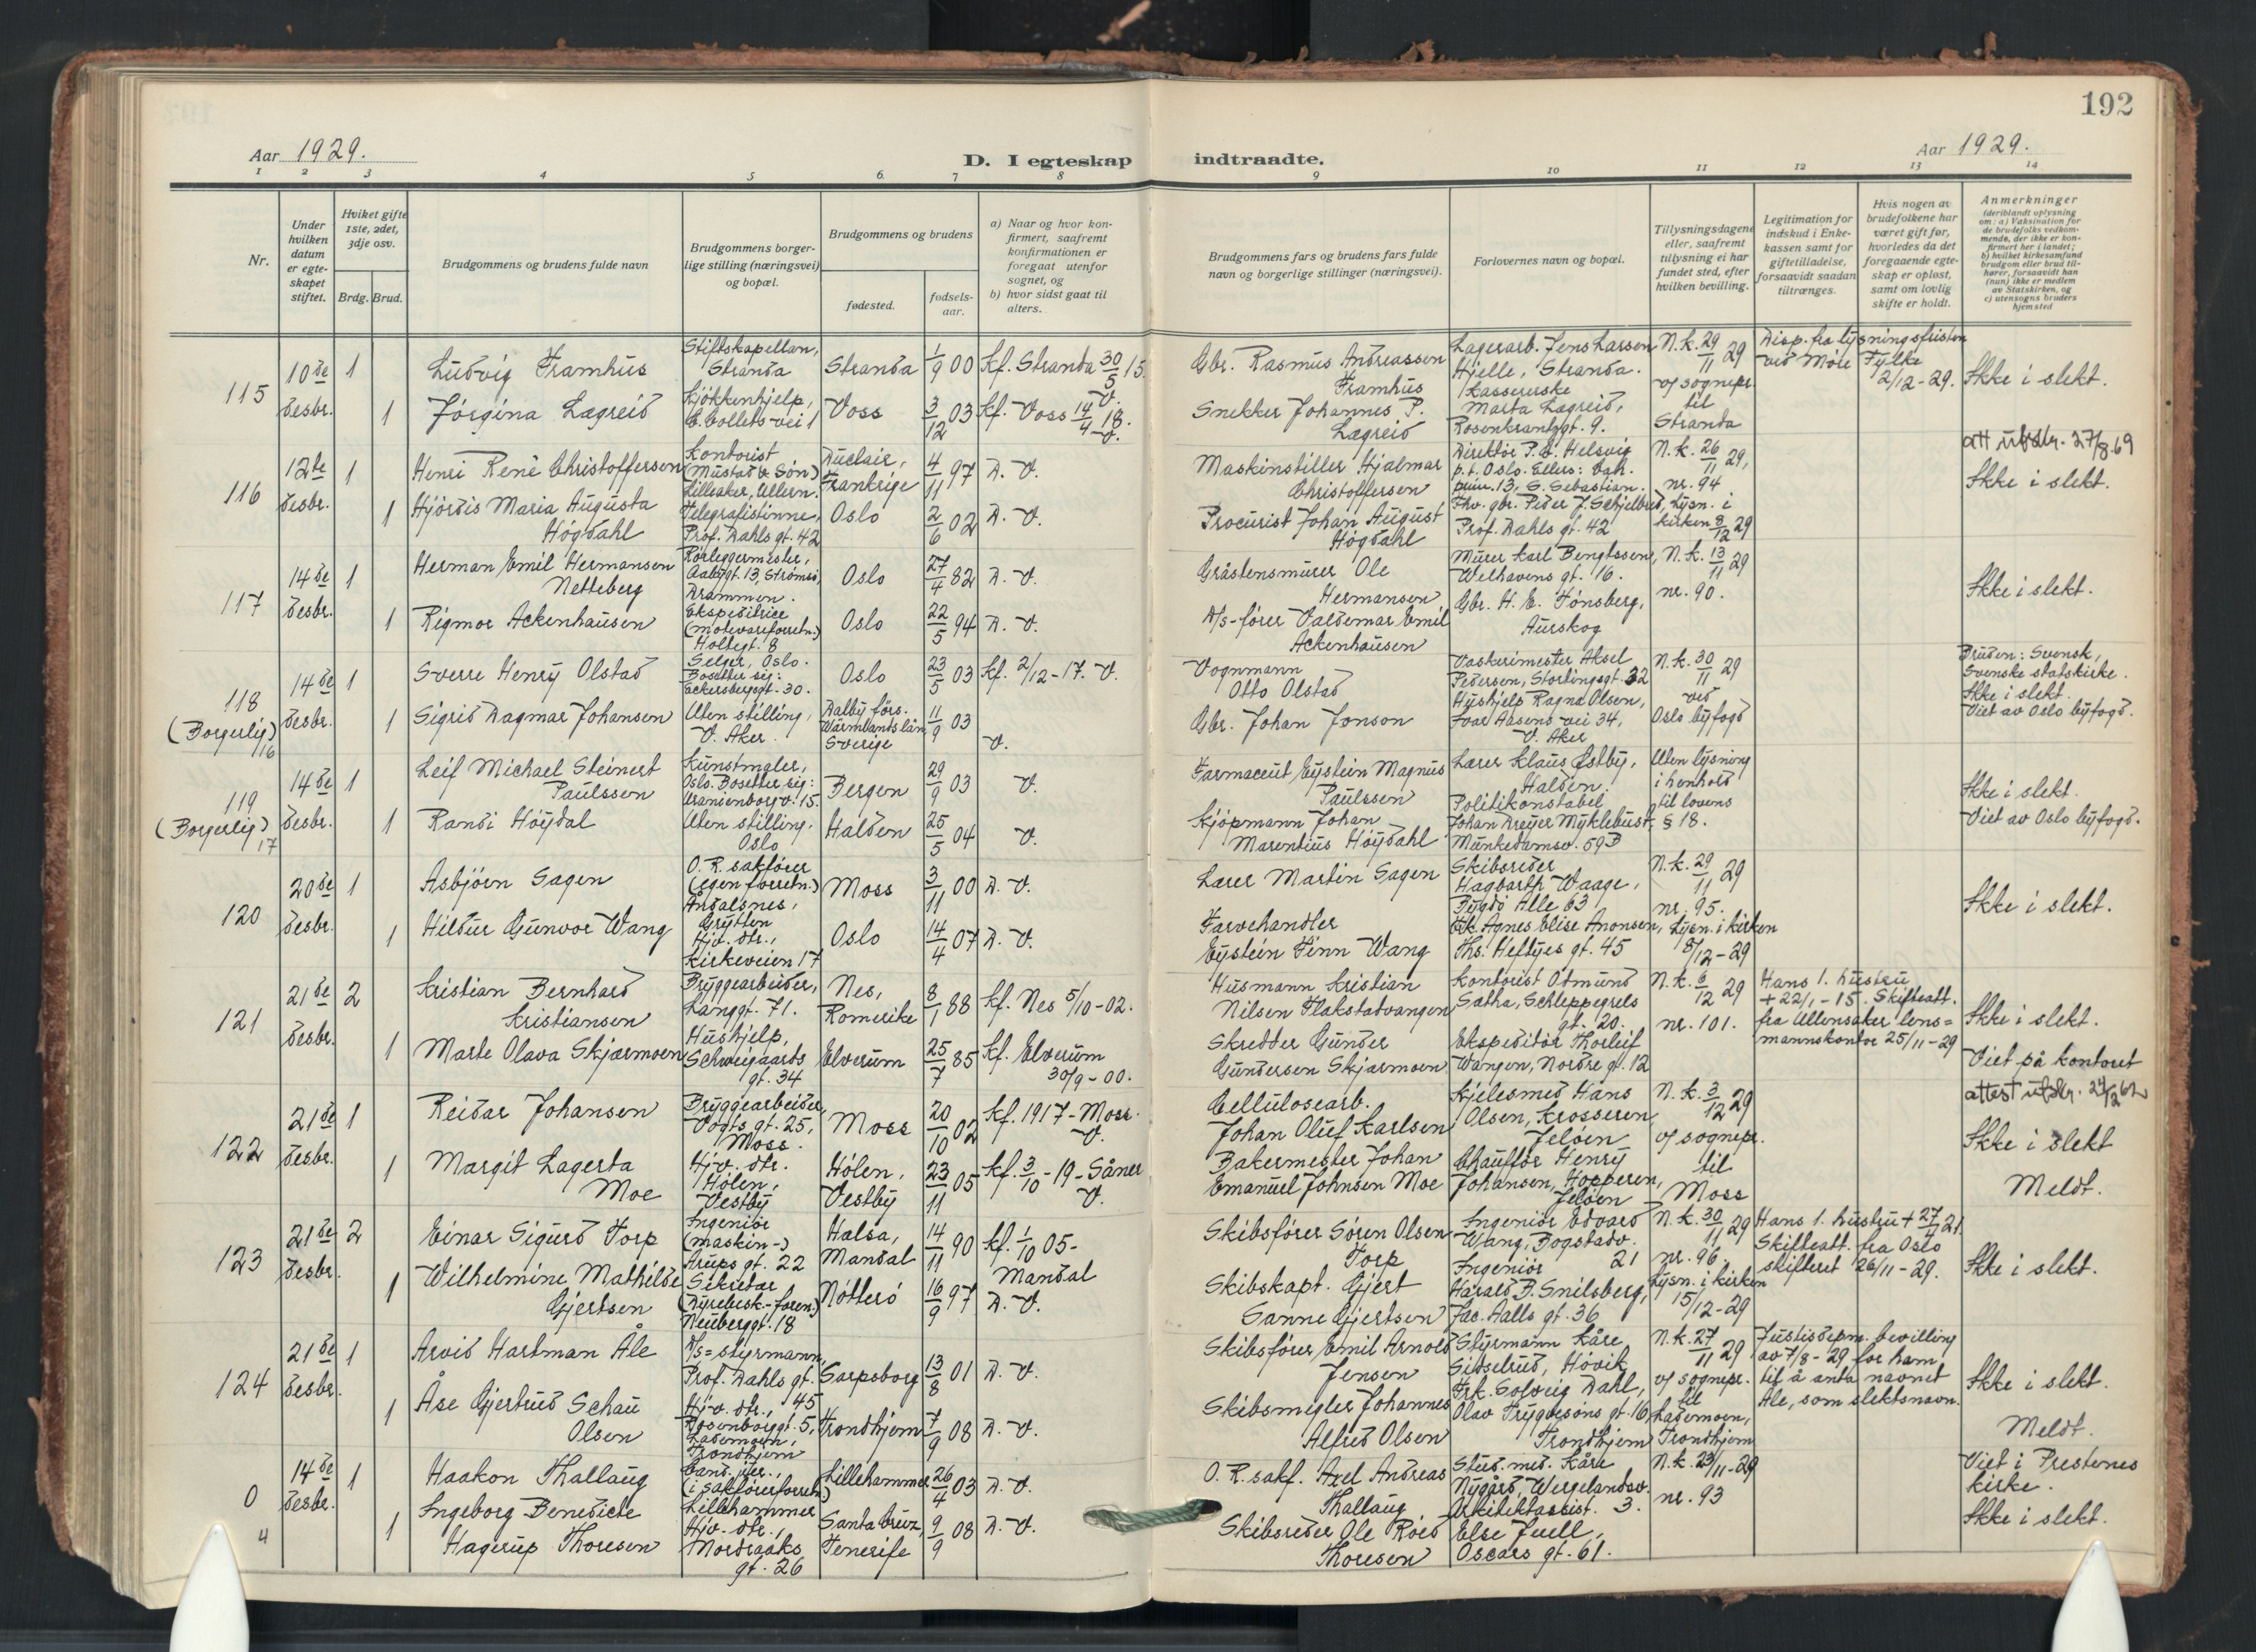 192
Aar 1929.
D. I egteskap indtraadte.
Aar 1929.
1 2 3 4 5 6. 7 8 9 10 11 12 13 14
Nr.
Under hvilken datum er egteskapet stiftet.
Hviket gifte 1ste, 2det, 3dje osv.
Brdg. Brud.
Brudgommens og brudens fulde navn
Brudgommens borgerlige stilling (næringsvei) og bopæl.
Brudgommens og brudens
fødested.
fødselsaar.
a) Naar og hvor konfirmert, saafremt konfirmationen er foregaat utenfor sognet, og
b) hvor sidst gaat til alters.
Brudgommens fars og brudens fars fulde navn og borgerlige stillinger (næringsvei).
Forlovernes navn og bopæl.
Tillysningsdagene eller, saafremt tillysning ei har fundet sted, efter hvilken bevilling.
Legitimation for indskud i Enkekassen samt for giftetilladelse, forsaavidt saadan tiltrænges.
Hvis nogen av brudefolkene har været gift før, hvorledes da det foregaaende egteskap er opløst, samt om lovlig skifte er holdt.
Anmerkninger
(deriblandt oplysning om: a) Vaksination for de brudefolks vedkommende, der ikke er konfirmert her i landet; b) hvilket kirkesamfund brudgom eller brud tilhører, forsaavidt han (hun) ikke er medlem av Statskirken, og c) utensogns bruders hjemsted
115
10de desbr.
1
Ludvig Framhus
Stiftskapellan, Stranda
Stranda
1/9 00
Kf. Stranda 30/5 15. V.
Gbr. Rasmus Andreassen Framhus
Lagerarb. Jens Larsen Hjelle, Stranda.
N.k. 29/11 29 v/ sognepr. til Stranda
Disp. fra lysningsfristen ved Møre Fylke 2/12-29.
Ikke i slekt.
1
Jórgina Lægreid
Kjökkenhjelp, C. Collets vei 1
Voss
3/12 03
Kf. Voss 14/4 18. V.
Snekker Johannes P. Lægreid
Kassererske Marta Lægreid, Rosenkrantzgt. 9.
116
12te desbr.
1
Henri René Christoffersen
Kontorist (Mustad & Søn) Lilleaker, Ullern.
Duclair, Frankrige
4/11 97
D. V.
Maskinstiller Hjalmar Christoffersen
Direktør P. C. Helsvig p.t. Oslo. Ellers:
13, S. Sebastian.
N.k. 26/11 29, nr. 94
att utstdr. 27/8.69
Ikke i slekt.
1
Hjördis Maria Augusta Högdahl
Telegrafistinne, Prof. Dahls gt. 42
Oslo
2/6 02
D. V.
Procurist Johan August Högdahl
Fhv. gbr. Peder J. Schjelbred, Prof. Dahls gt. 42
Lysn. i kirken 8/12 29
117
14de desbr.
1
Herman Emil Hermansen Netteberg
Rørleggermester, Aabygt. 13, Strømsö, Drammen.
Oslo
27/4 82
D. V.
Gråstensmurer Ole Hermansen
Murer Karl Bengtssen, Welhavens gt. 16.
N.k. 13/11 29 nr. 90.
Ikke i slekt.
1
Rigmor Ackenhausen
Ekspeditrice (motevareforretn.) Holtegt. 8
Oslo
22/5 94
D. V.
D/s-förer Valdemar Emil Ackenhausen
Gbr. H. E. Tönsberg, Aurskog
118
(Borgerlig) 16
14de desbr.
1
Sverre Henry Olstad
Selger, Oslo. Bosetter sig: Eckersbergsgt. 30.
Oslo
23/5 03
Kf. 2/12-17. V.
Vognmann Otto Olstad
Vaskerimester Aksel Pedersen, Stortingsgt. 32
N.k. 30/11 29 ved Oslo byfogd
Bruden: Svensk, Svenske statskirke.
Ikke i slekt.
Viet av Oslo byfogd.
1
Sigrid Dagmar Johansen
Uten stilling, V. Aker.
Dalby förs. Wärmlands län, Sverige
11/9 03
V.
Gbr. Johan Jonson
Hushjelp Ragna Olsen, Ivar Aasens vei 34, V. Aker
119
(Borgerlig) 17
14de desbr.
1
Leif Michael Steinert Paulssen
Kunstmaler, Oslo. Bosetter sig: Uranienborgv. 15.
Bergen
29/9 03
V.
Farmaceut Eystein Magnus Paulssen
Lærer Klaus Østby, Halden.
Uten lysning i henhold til lovens § 18.
Ikke i slekt.
Viet av Oslo byfogd.
1
Randi Höydal
Uten stilling. Oslo
Halden
25/5 04
V.
Kjöpmann Johan Marentius Höydahl
Politikonstabel Johan Dreyer Myklebust, Munkedamsv. 59B
120
20de desbr.
1
Asbjörn Sagen
O.R.sakförer (egen forretn.) Åndalsnes, Grytten
Moss
3/11 00
D. V.
Lærer Martin Sagen
Skibsreder Hagbarth Waage, Bygdö Alle 63
N.k. 29/11 29 nr. 95.
Ikke i slekt.
1
Hildur Gunvor Wang
Hjv. dtr., Kirkeveien 17
Oslo
14/4 07
D. V.
Farvehandler Eystein Finn Wang
Frk. Agnes Elise Anonsen, Ths. Heftyes gt. 45
Lysn. i kirken 8/12-29
121
21de desbr.
2
Kristian Bernhard Kristiansen
Bryggearbeider, Langgt. 71.
Nes, Romerike
8/1 88
Kf. Nes 5/10-02.
Husmann Kristian Nilsen Flakstadvangen
Kontorist Odmund Sætha, Schleppegrels gt. 20.
N.k. 6/12 29 nr. 101.
Hans 1. hustru + 22/1-15. Skifteatt. fra Ullensaker lensmannskontor 25/11-29
Ikke i slekt.
Viet på kontoret
1
Marte Olava Skjærmoen
Hushjelp, Schweigaards gt. 34
Elverum
25/7 85
Kf. Elverum 30/9-00.
Skredder Gunder Gundersen Skjærmoen
Ekspeditör Thorleif Wangen, Nordre gt. 12
122
21de desbr.
1
Reidar Johansen
Bryggearbeider, Vogts gt. 25, Moss.
Moss
20/10 02
Kf. 1917-Moss. V.
Cellulosearb. Johan Oluf Karlsen
Kjelesmed Hans Olsen, Krosseren, Jelöen
N.k. 3/12 29 v/ sognepr. til Moss
attest utstdr. 24/2 62
Ikke i slekt
Meldt.
1
Margit Lagerta Moe
Hjv. dtr. Hölen, Vestby
Hölen, Vestby
23/11 05
Kf. 3/10-19-Såner V.
Bakermester Johan Emanuel Johnsen Moe
Chauffør Henry Johansen, Hopperen, Jelöen
123
21de desbr.
2
Einar Sigurd Torp
Ingeniör (maskin-) Arups gt. 22
Halsa, Mandal
14/11 90
Kf. 1/10 05- Mandal
Skibsförer Sören Olsen Torp
Ingeniör Edvard Wang, Bogstadv. 21
N.k. 30/11 29 nr. 96.
Hans 1. hustru + 27/4 21. Skifteatt. fra Oslo skifteret 26/11-29.
Ikke i slekt.
1
Wilhelmine Mathilde Gjertsen
Sekretær (Dyrebesk.-foren.) Neuberggt. 18
Nötterö
16/9 97
D. V.
Skibskapt. Gjert Sanne Gjertsen
Ingeniör Harald B. Snilsberg, Jac. Aalls gt. 36
Lysn. i kirken 15/12-29
124
21de desbr.
1
Arvid Hartman Åle
D/s=styrmann, Prof. Dahls gt. 45
Sarpsborg
13/8 01
D. V.
Skibsförer Emil Arnold Jensen
Styrmann Kåre Sidselrud, Hövik
N.k. 27/11 29 v/ sognepr. til Lademoen, Trondhjem
Justisdepm. bevilling av 7/8-29 for ham til å anta navnet Åle, som slektsnavn.
Ikke i slekt.
Meldt.
1
Åse Gjertrud Schau Olsen
Hjv. dtr., Rosenborggt. 5, Lademoen, Trondhjem
Trondhjem
7/9 08
D. V.
Skibsmegler Johannes Alfred Olsen
Frk. Solveig Dahl, Olav Trygvesöns gt. 16, Trondhjem
0
4
14de desbr.
1
Haakon Thallaug
Cand. jur., (i sakförerforretn.) Lillehammer
Lillehammer
26/4 03
D. V.
O.R.sakf. Axel Andreas Thallaug
Stud. med. Kåre Nygård, Wergelandsv. 3.
N.k. 23/11-29 nr. 93
Viet i Prestenes kirke.
Ikke i slekt.
1
Ingeborg Benedicte Hagerup Thoresen
Hjv. dtr., Nordraaks gt. 26
Santa Cruz, Tenerife
9/9 08
D. V.
Skibsreder Ole Röed Thoresen
Arkitektassist. Else Juell, Oscars gt. 61.